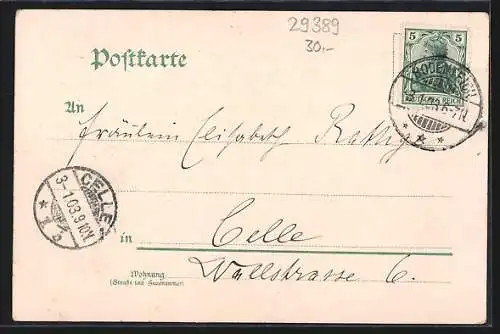 29389
30,-
Postkarte
5 5
DEUTSCHES REICH
An
Fräulein Elisabeth
CELLE
3-1.03.9-10V.
* 1 b
in Celle
Wallstrasse 6.
Wohnung
(Straße und Hausnummer)